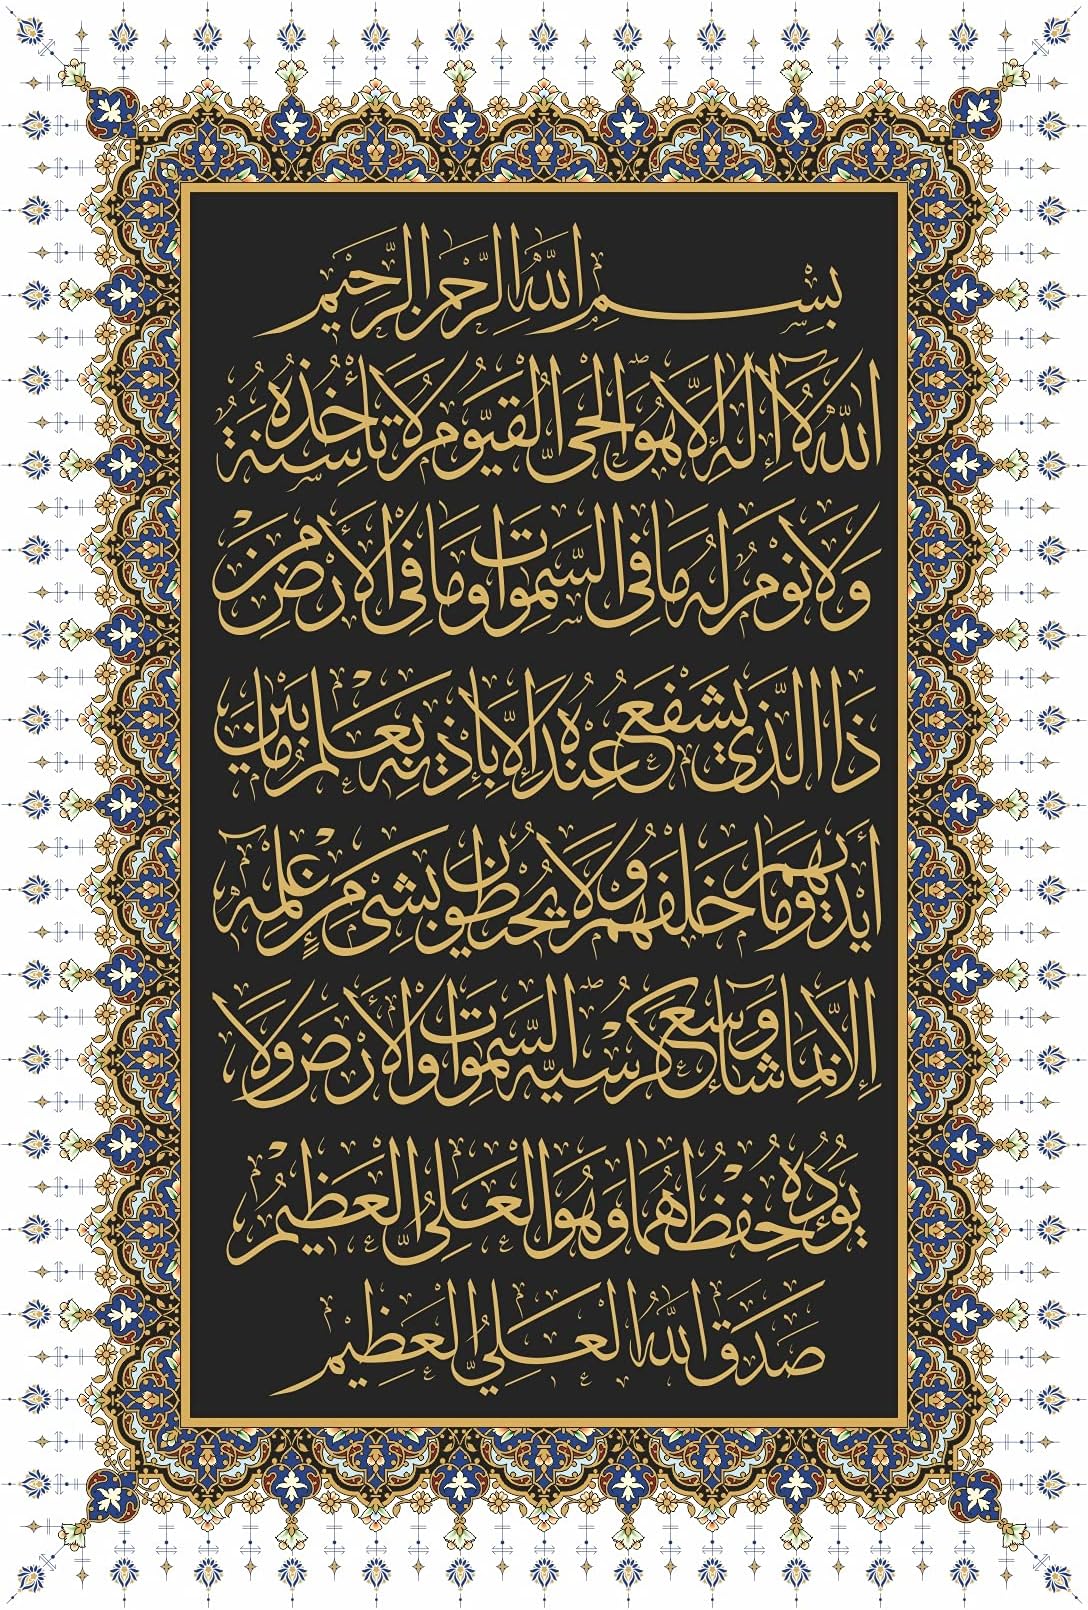 بِسْمِ اللَّهِ الرَّحْمٰنِ الرَّحِيمِ
اللَّهُ لَا إِلٰهَ إِلَّا هُوَ الْحَيُّ الْقَيُّومُ لَا تَأْخُذُهُ سِنَةٌ
وَلَا نَوْمٌ لَهُ مَا فِي السَّمٰوَاتِ وَمَا فِي الْأَرْضِ مَنْ
ذَا الَّذِي يَشْفَعُ عِنْدَهُ إِلَّا بِإِذْنِهِ يَعْلَمُ مَا بَيْنَ
أَيْدِيهِمْ وَمَا خَلْفَهُمْ وَلَا يُحِيطُونَ بِشَيْءٍ مِنْ عِلْمِهِ
إِلَّا بِمَا شَاءَ وَسِعَ كُرْسِيُّهُ السَّمٰوَاتِ وَالْأَرْضَ وَلَا
يَئُودُهُ حِفْظُهُمَا وَهُوَ الْعَلِيُّ الْعَظِيمُ
صَدَقَ اللَّهُ الْعَلِيُّ الْعَظِيمُ